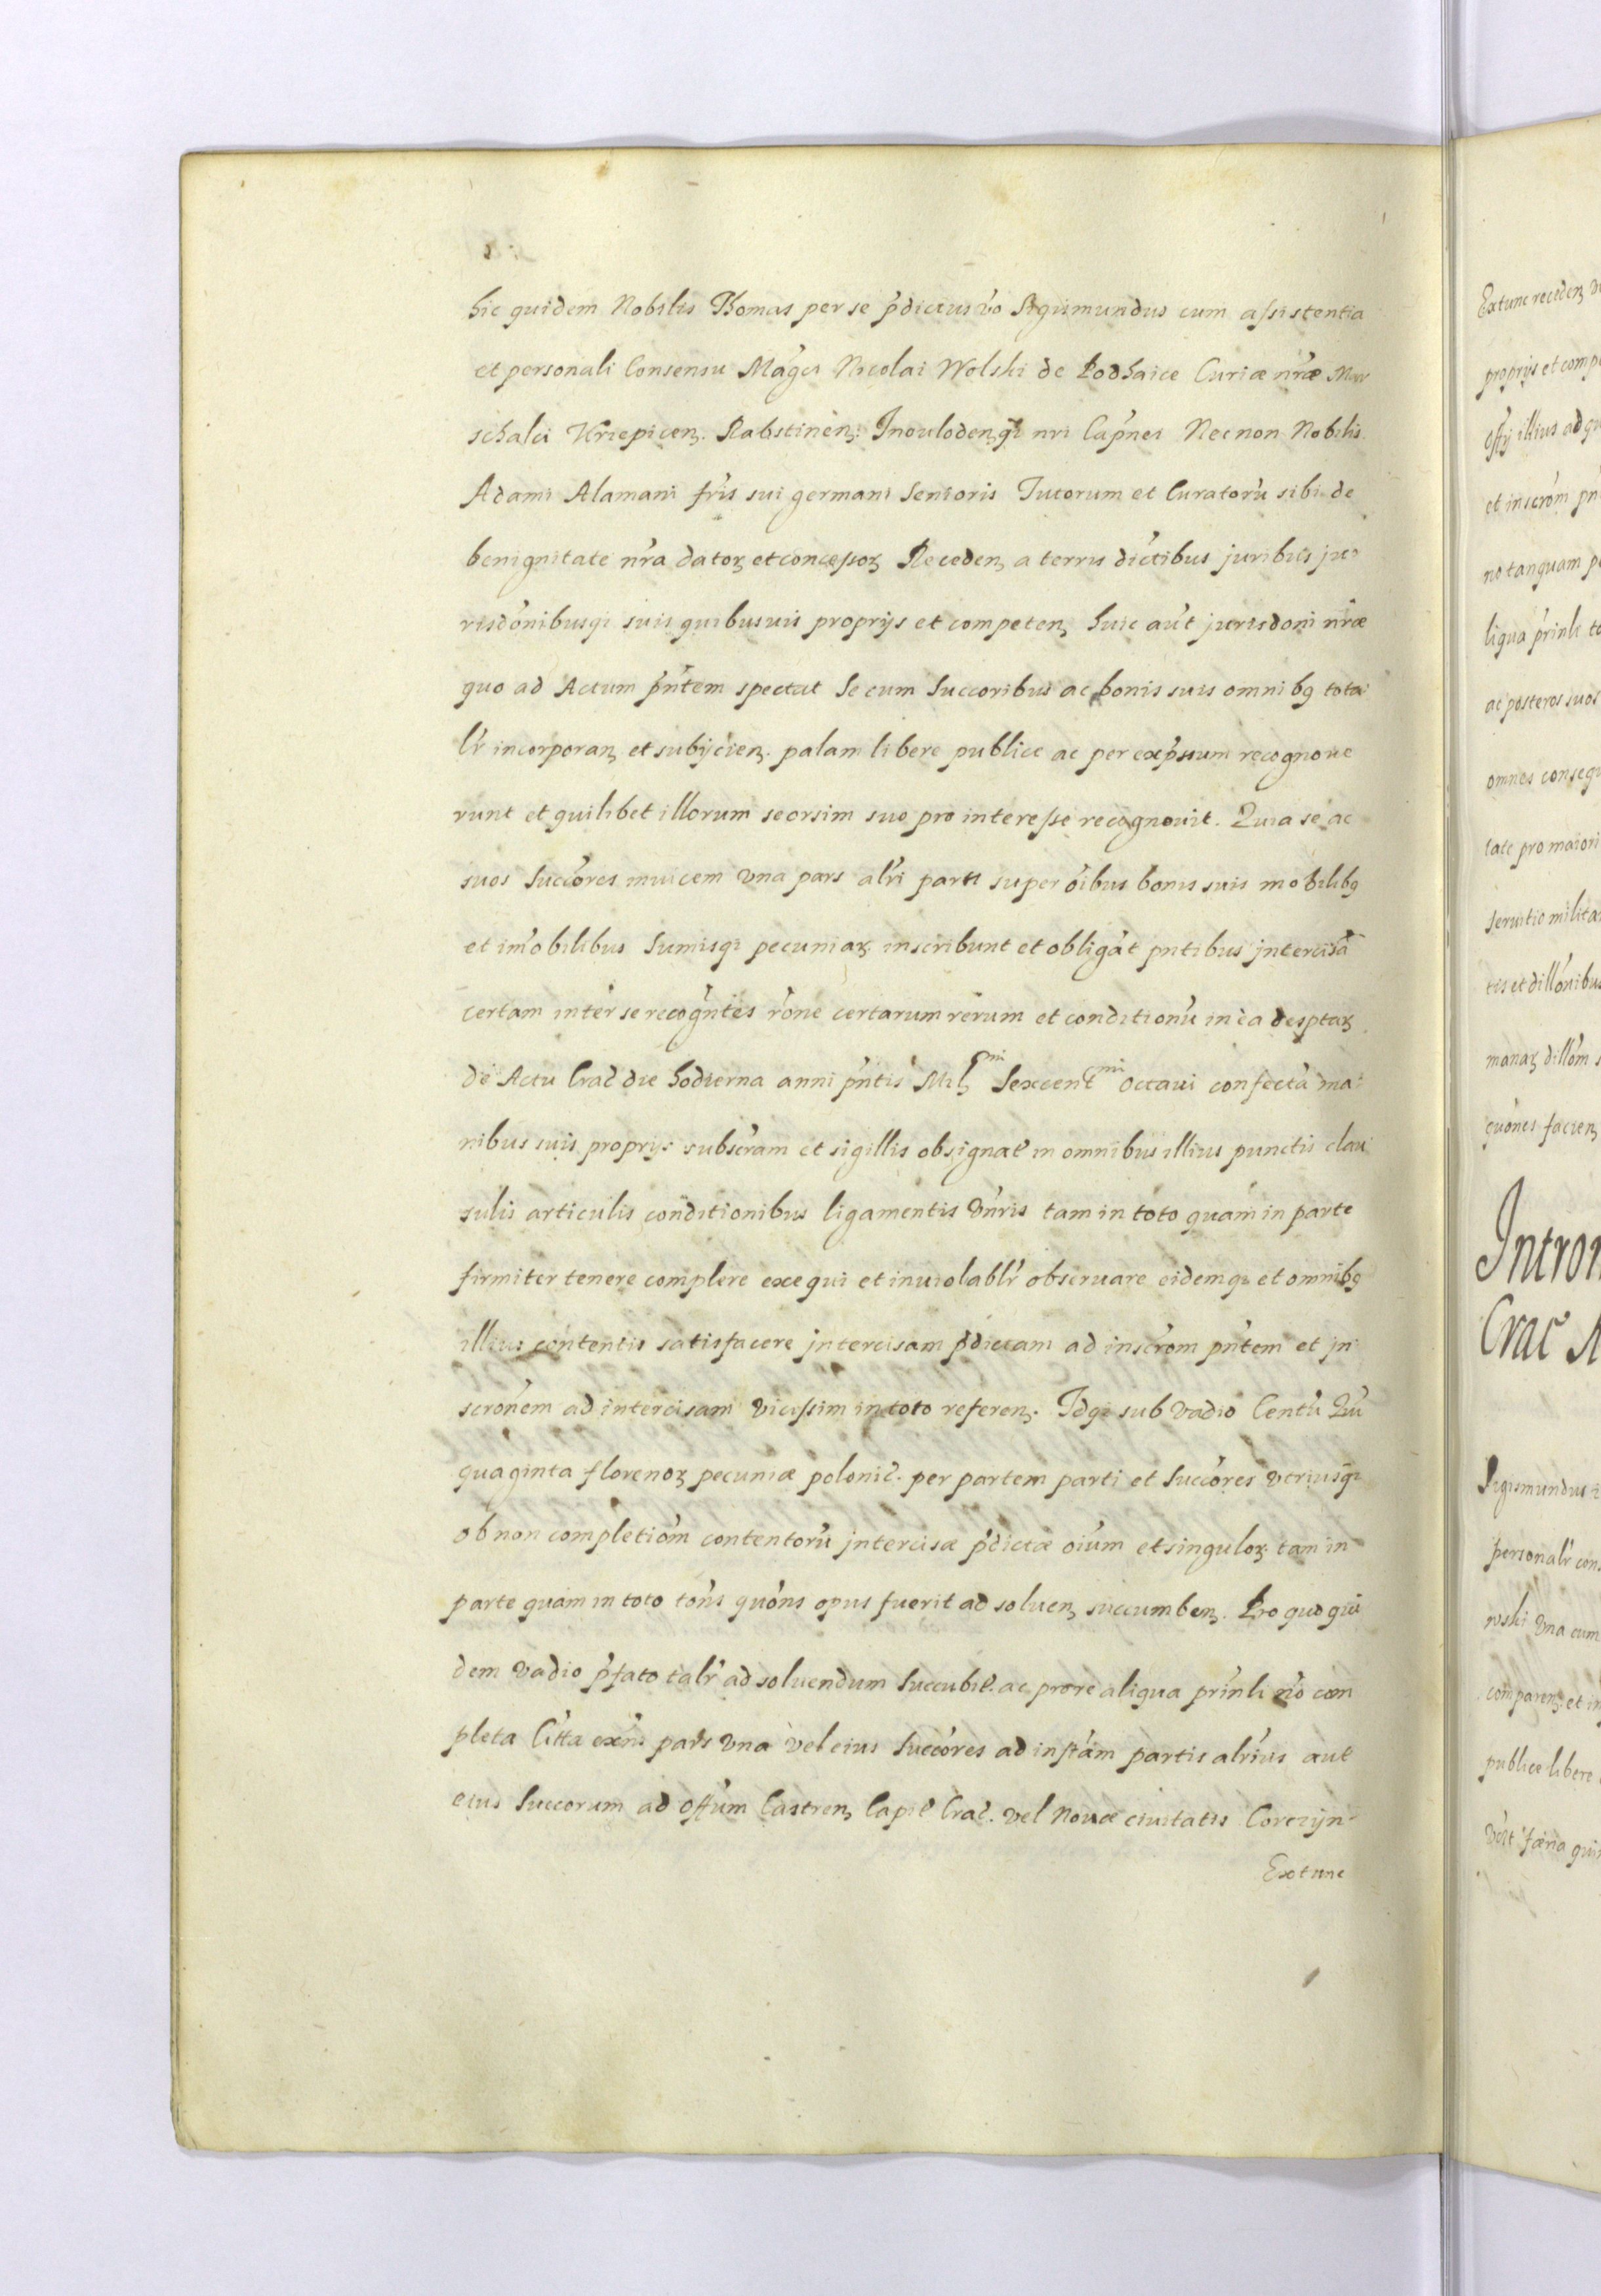 hic quidem Nobilis Thomas per se p̃dictus v̆o Sigismundus cum aſsistentia
et personali Consensu Mag̃ci Nicolai Wolski de Podhaice Curiæ nr̃æ Mar
schalci Krzepicen. Rabstinen: Inowlodenq̃ nri Cap̃nei Nec non Nobilis
Adami Alamani fr̃is sui germani Senioris Tutorum et Curatorũ sibi de
benignitate nr̃a datoꝝ et conceſsoꝝ Receden, a terris dictibus juribus ju
risdõnibusq̃ suis quibusuis proprijs et competen, huic aũt jurisdoni nr̃æ
quo ad Actum pñtem spectat Se cum Succoribus ac bonis suis omnibꝯ tota
lr̃ incorporan, et subijcien, palam libere publice ac per exp̃sum recognoue
runt et quilibet illorum seorsim suo pro intereſse recognouit. Quia se ac
suos Succõres inuicem vna pars alr̃i parti super õibus bonis suis mobilibꝯ
et im̃obilibus Sumisq̃ pecuniaꝝ inscribunt et obligãt pntibus jntercisã
certam inter se recogñtes rõne certarum rerum et conditionũ in ea desptaꝝ
de Actu Crac̃ die hodierna anni pñtis Mill̃mi Sexcent̃mi octaui confectã ma
nibus suis proprijs subscr̃am et sigillis obsignat̃ in omnibus illius punctis clau
sulis articulis conditionibus ligamentis vñris tam in toto quam in parte
firmiter tenere complere exequi et inuiolablr̃ obseruare eidemq̃ et omnibꝯ
illius contentis satisfacere jntercisam p̃dictam ad inscr̃om pñtem et jn
scrõnem ad intercisam viciſsim in toto referen, Idq̃ sub vadio Centũ Qu
quaginta florenoꝝ pecuniæ polonic̃. per partem parti et Succõres vtriusq̃
ob non completiõm contentorũ jntercisæ p̃dictæ oĩum et singuloꝝ tam in
parte quam in toto toñs quõns opus fuerit ad soluen, succumben, Pro quo qui
dem vadio p̃fato talr̃ ad soluendum Succubit̃. ac pro re aliqua prĩnli nõ com
pleta Citta exñs pars vna vel eius Succõres ad instãm partis alr̃ius aut
eius Succorum ad offũm Castren, Capit̃ Crac̃. vel Nouæ ciuitatis Corczyn
Extunc
Extunc receden,
proprijs et comp
offij illius ad qu
et inscrõm pñ
nõ tanquam p
liqua prĩnli to
ac posteros suos
omnes consequ
tate pro maiori
seruitio milita
tis et dillõnibus
manaꝝ dillõm s
cuõnes facien,
Introm
Crac̃ A
Sigismundus
personalr̃ con
wski vna cum
comparen, et in
publice libere